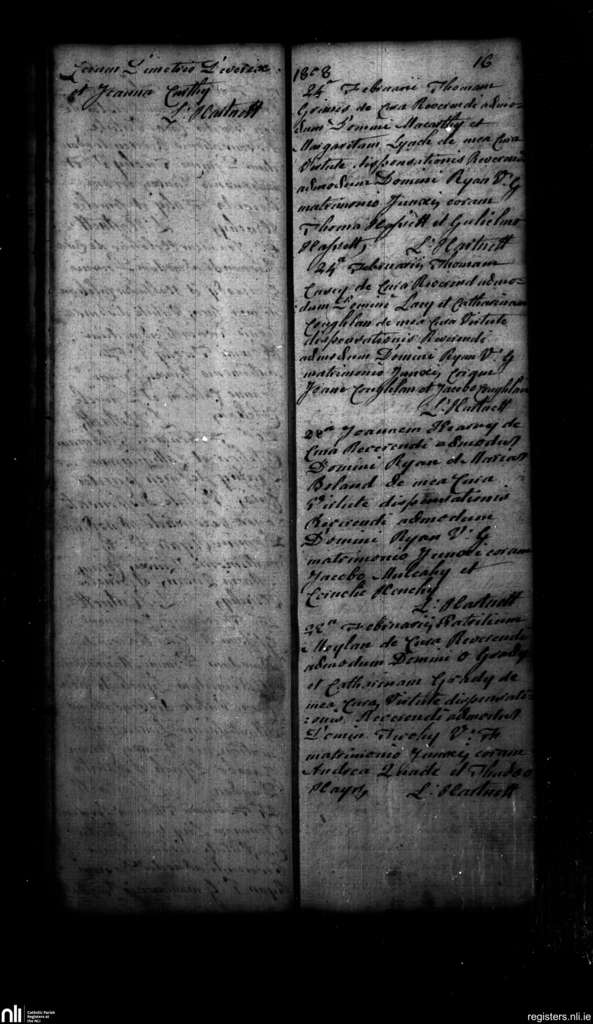 Coram Dimetrio Devereux
et Joanna Carthy
L: Hartnett
16
1808
24ª Februarii Thomam
Grimes de Cura Reverende admo-
dum Domini Macarthy et
Margaritam Lynch de mea Cura
Virtute dispensationis Reverendi
admodum Domini Ryan V: G
matrimonio Junxi coram
Thoma Hassett et Gulielmo
Hassett L: Hartnett
24ª Februarii Thomam
Casey de Cura Reverend admo-
dum Domini Lacy et Catharinam
Coughlan de mea Cura Virtute
dispensationis Reverendi
admodum Domini Ryan V: G
matrimonio Junxi
Joane Coughlan et Jacobo Coughlan
L: Hartnett
28ª Joannem Hearny de
Cura Reverendi admodum
Domini Ryan
Boland de mea Cura
Virtute dispensationis
Reverendi admodum
Domini Ryan V: G
matrimonio Junxi coram
Jacobo Mulcahy et
Henchy
L: Hartnett
28ª Februarii Patritium
Moylan de Cura Reverende
admodum Domini O Grady
et Catharinam Grady de
mea Cura Virtute dispensati-
:onis Reverendi admodum
Domin Twohy V: F
matrimonio Junxi coram
Andrea Quade et
Hays L: Hartnett
nli
Catholic Parish
Registers at
the NLI
registers.nli.ie